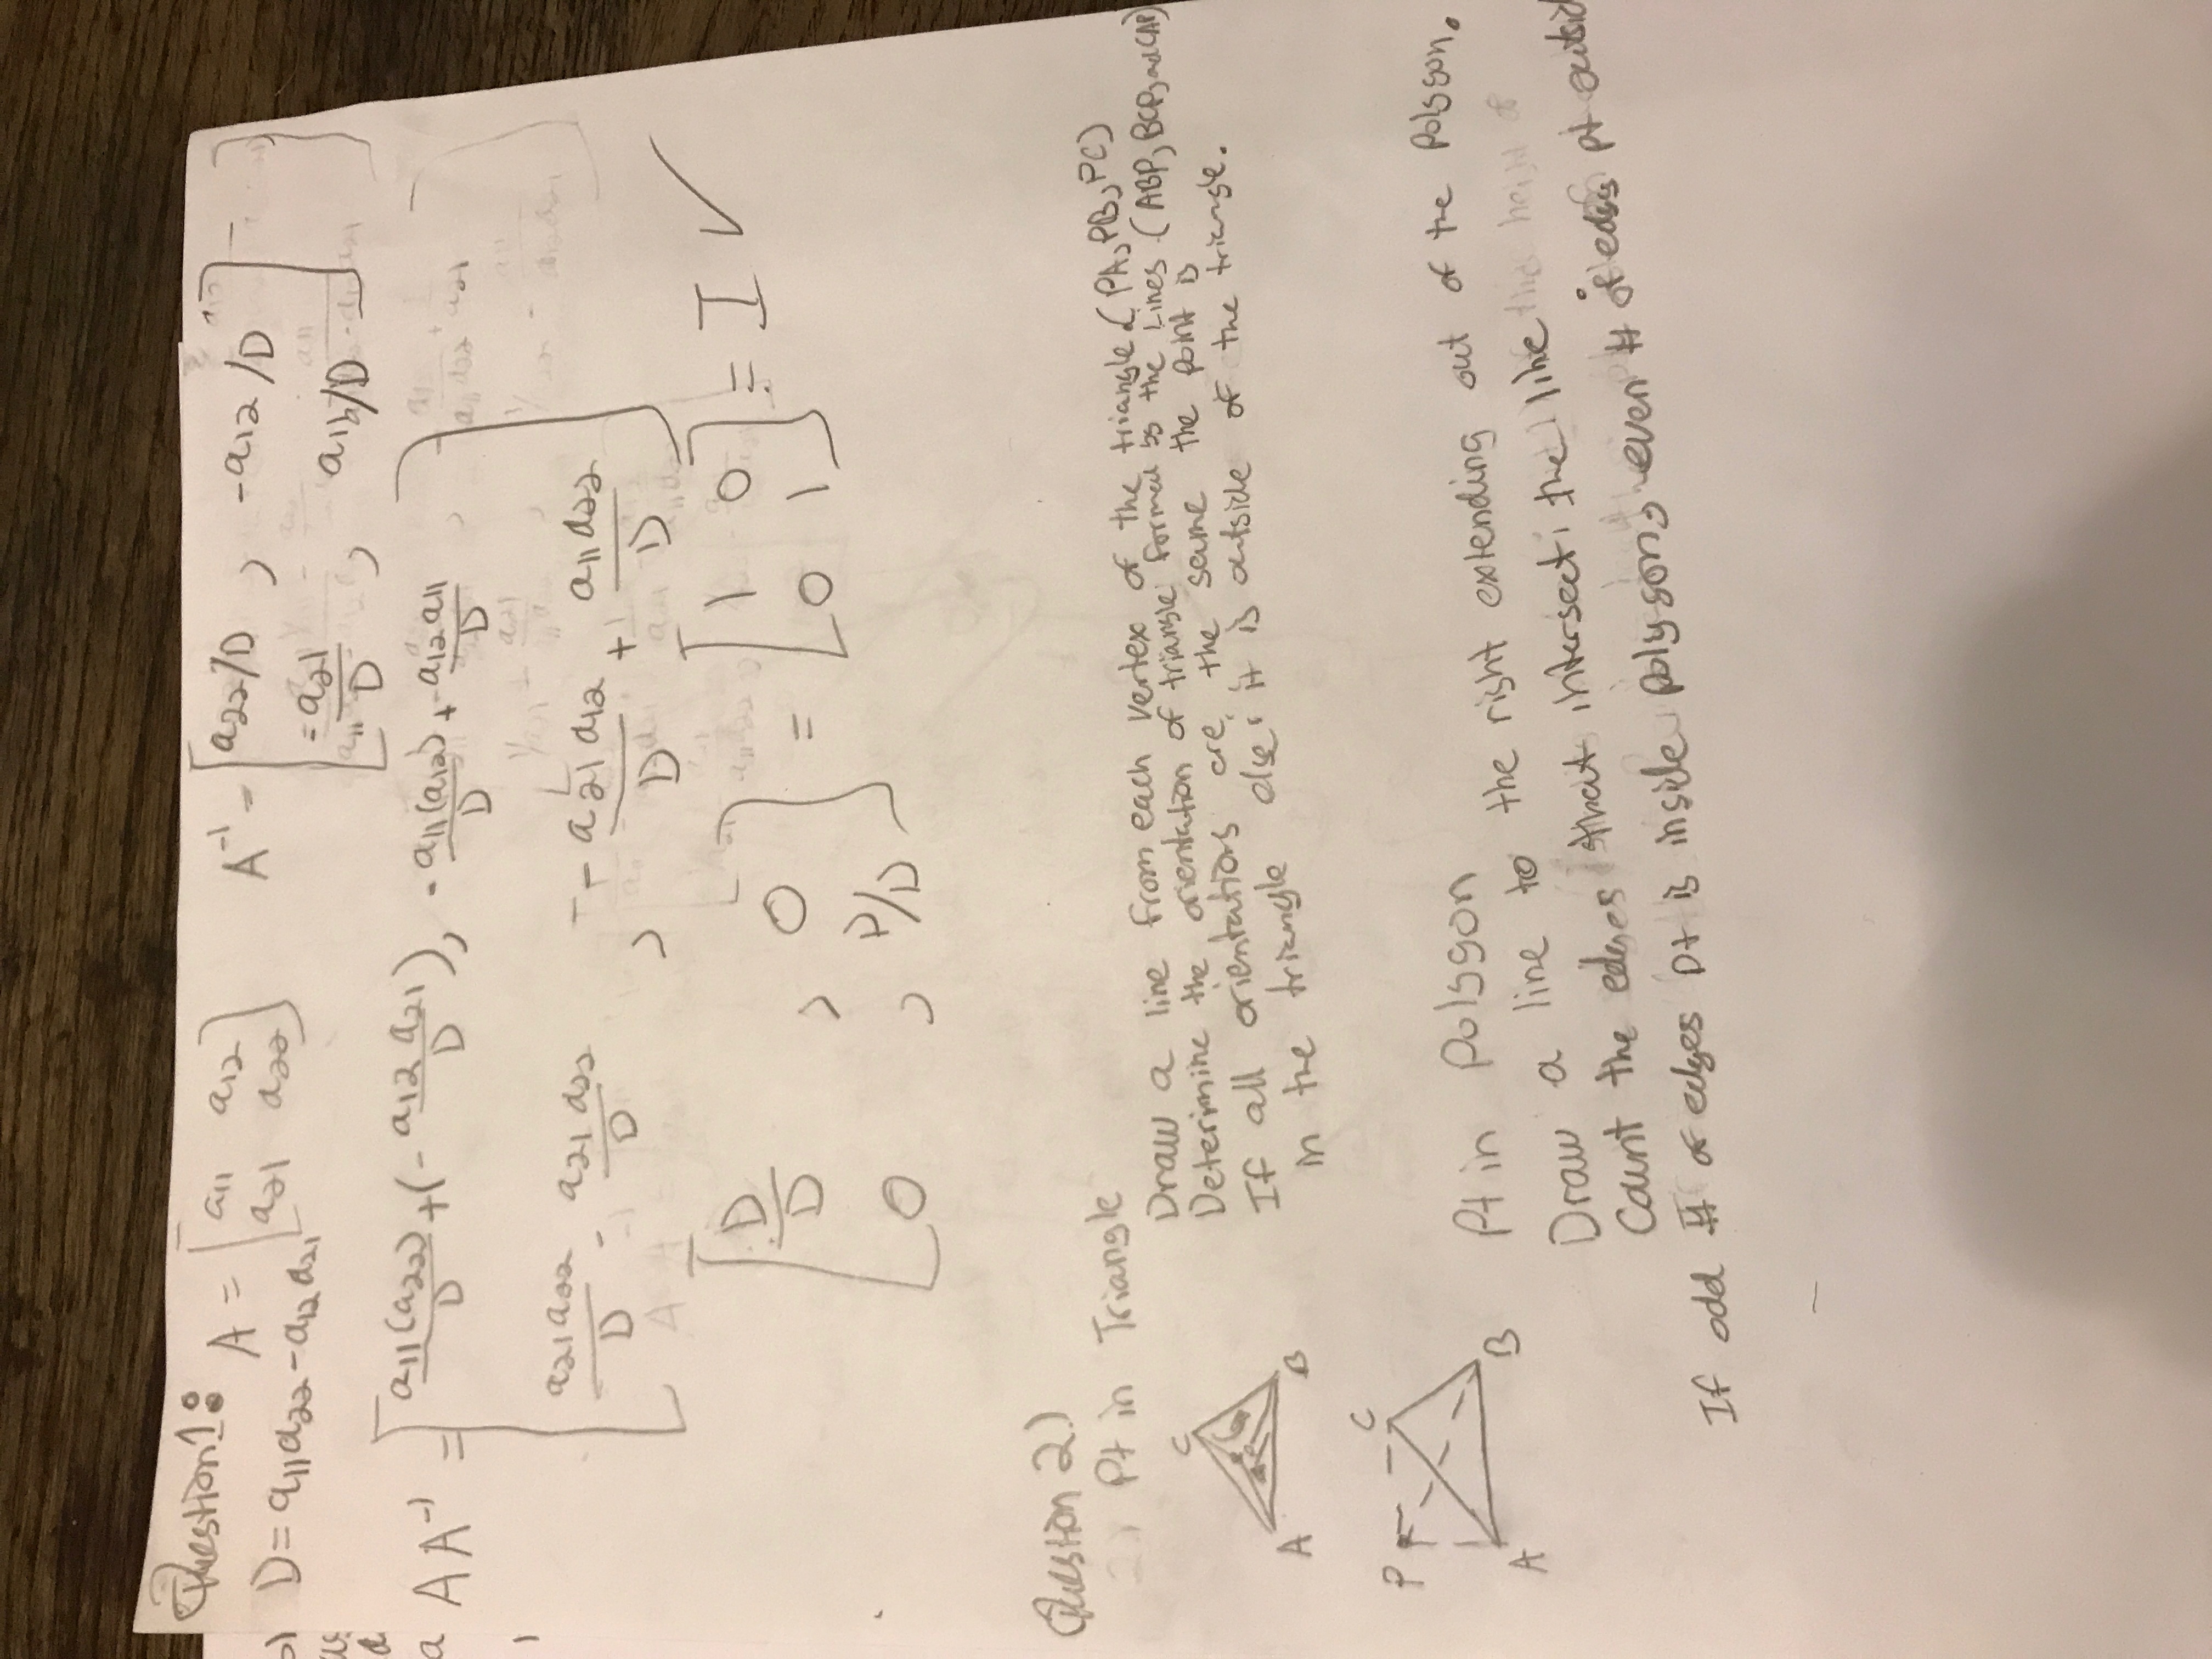 Question 1:
A = [a11 a12
a21 a22]
A^-1 = [a22/D , -a12/D
-a21/D , a11/D]
D = a11a22 - a12a21
AA^-1 = [a11(a22)/D + (-a12a21/D), -a11(a12)/D + a12a11/D
a21a22/D - a21a22/D , -a21a12/D + a11a22/D]
[D/D , 0
0 , D/D] = [1 0
0 1] = I ✓
Question 2.)
2.) Pt in Triangle
Draw a line from each vertex of the triangle. (PA, PB, PC)
Determine the orientation of triangle formed by the Lines (ABP, BCP, and CAP)
If all orientations are the same the point is
in the triangle else it is outside of the triangle.
C
A B
P C
A B
Pt in Polygon
Draw a line to the right extending out of the Polygon.
Count the edges that intersect the line
If odd # of edges pt is inside polygon, even # of edges pt outsid